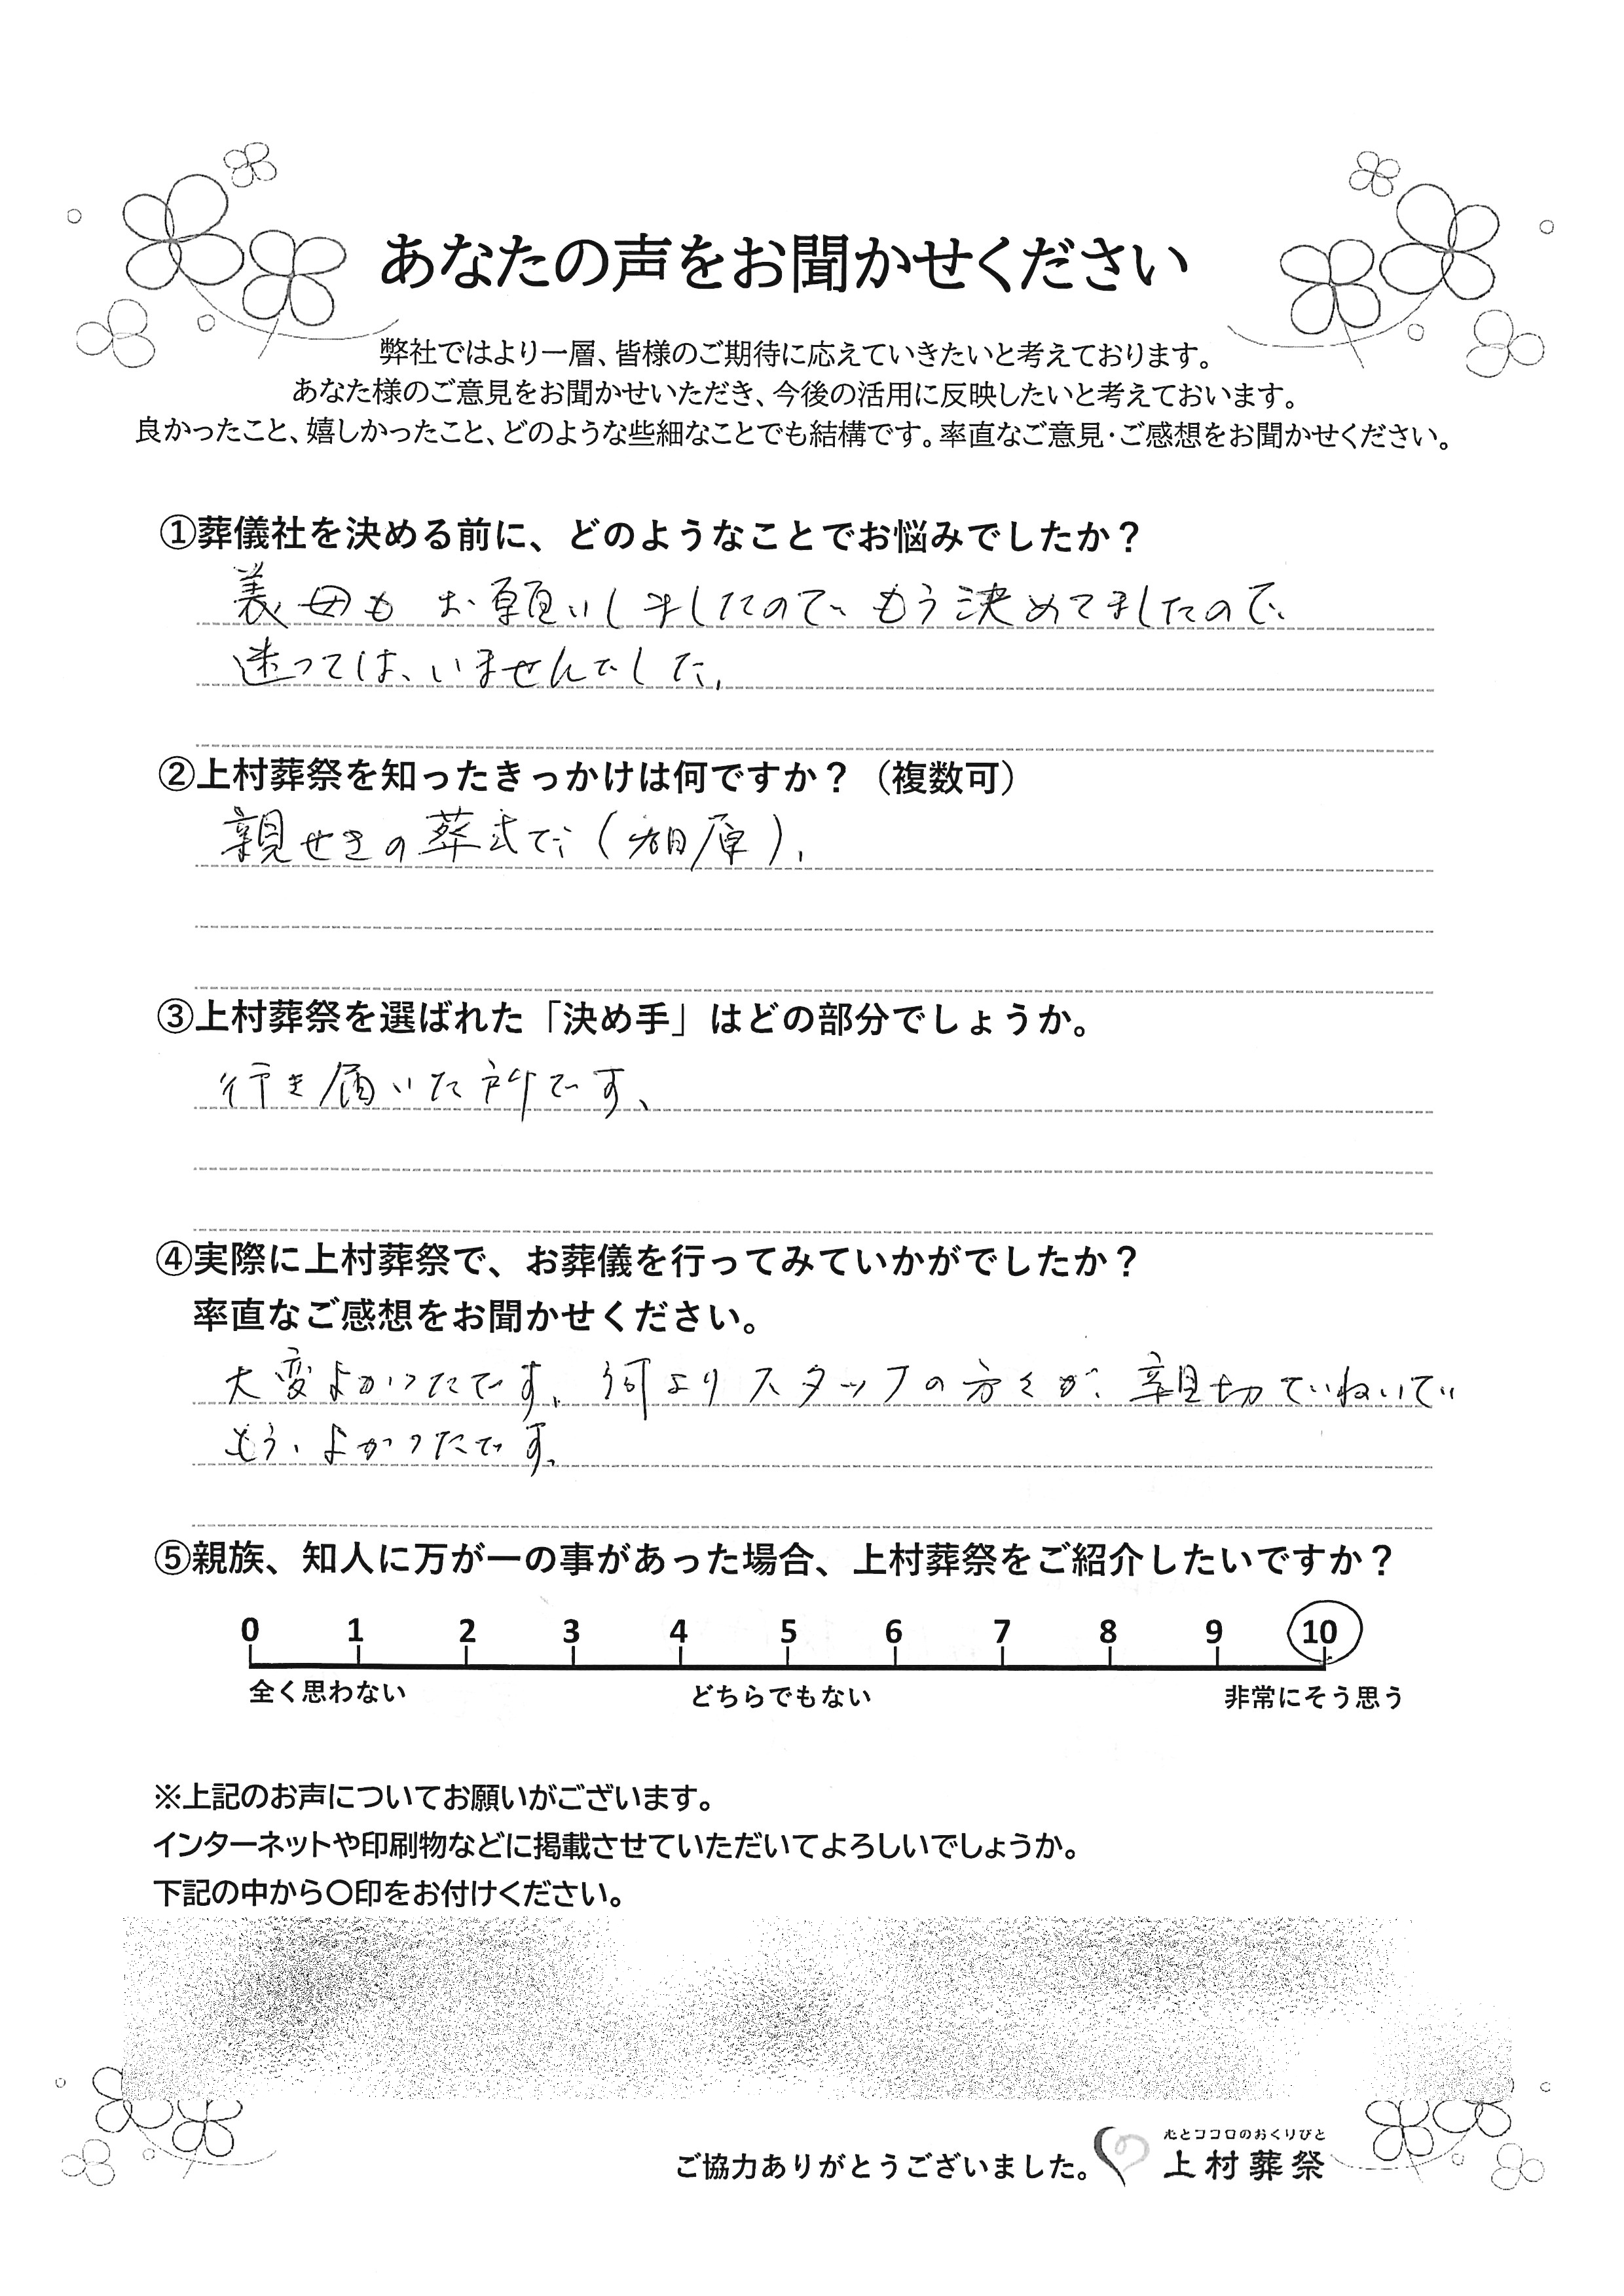 あなたの声をお聞かせください
弊社ではより一層、皆様のご期待に応えていきたいと考えております。
あなた様のご意見をお聞かせいただき、今後の活用に反映したいと考えておいます。
良かったこと、嬉しかったこと、どのような些細なことでも結構です。率直なご意見・ご感想をお聞かせください。
①葬儀社を決める前に、どのようなことでお悩みでしたか？
義母もお願いしましたので、もう決めてましたので、
迷っては、いませんでした。
②上村葬祭を知ったきっかけは何ですか？（複数可）
親せきの葬式で（相原）.
③上村葬祭を選ばれた「決め手」はどの部分でしょうか。
行き届いた所です、
④実際に上村葬祭で、お葬儀を行ってみていかがでしたか？
率直なご感想をお聞かせください。
大変よかったです。何よりスタッフの方々が、親切ていねいで
もう、よかったです。
⑤親族、知人に万が一の事があった場合、上村葬祭をご紹介したいですか？
0 1 2 3 4 5 6 7 8 9 10
全く思わない どちらでもない 非常にそう思う
※上記のお声についてお願いがございます。
インターネットや印刷物などに掲載させていただいてよろしいでしょうか。
下記の中から〇印をお付けください。
心とココロのおくりびと
ご協力ありがとうございました。 上村葬祭